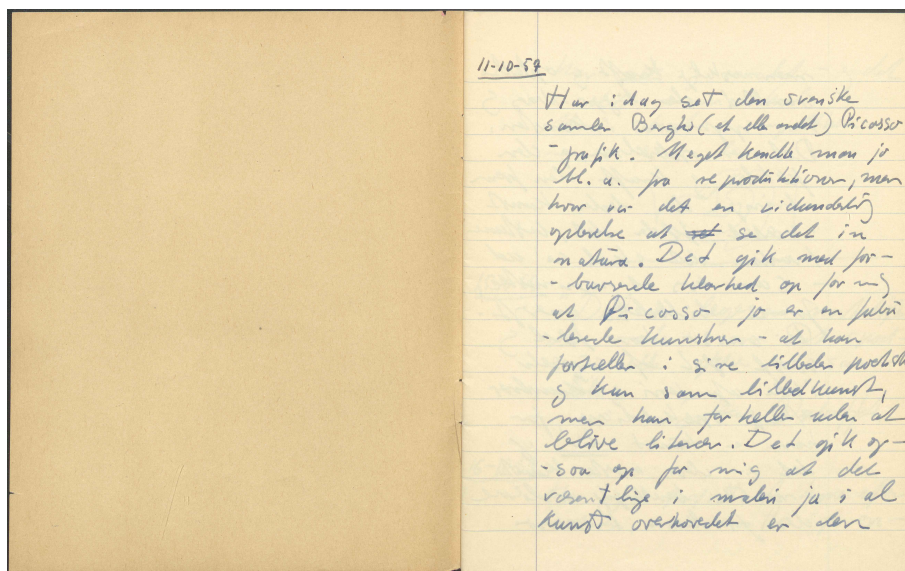 11-10-57
Har idag set den svenske
samler Berghs (et eller andet) Picasso
-grafik. Meget kendte man jo
bl.a. fra reproduktioner, men
hvor var det en vidunderlig
oplevelse at set se det in
natura. Det gik med for-
-bavsende klarhed op for mig
at Picasso jo er en fabu
-lerende kunstner - at han
fortæller i sine billeder poetisk
og kun som billedkunst,
men han fortæller uden at
blive litterær. Det gik og-
-saa op for mig at det
væsentlige i maleri ja i al
kunst overhovedet er den